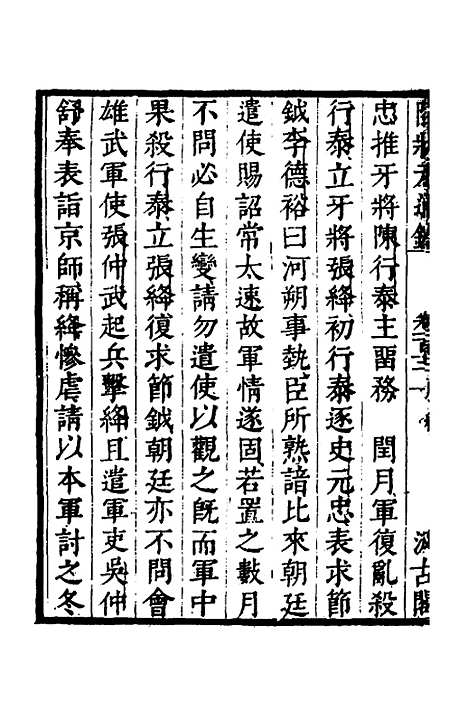 忠推牙將陳行泰主畱務　閏月軍復亂殺
行泰立牙將張絳初行泰逐史元忠表求節
鉞李德裕曰河朔事埶臣所熟諳比來朝廷
遣使賜詔常太速故軍情遂固若置之數月
不問必自生變請勿遣使以觀之旣而軍中
果殺行泰立張絳復求節鉞朝廷亦不問會
雄武軍使張仲武起兵擊絳且遣軍吏吳仲
舒奉表詣京師稱絳慘虐請以本軍討之冬